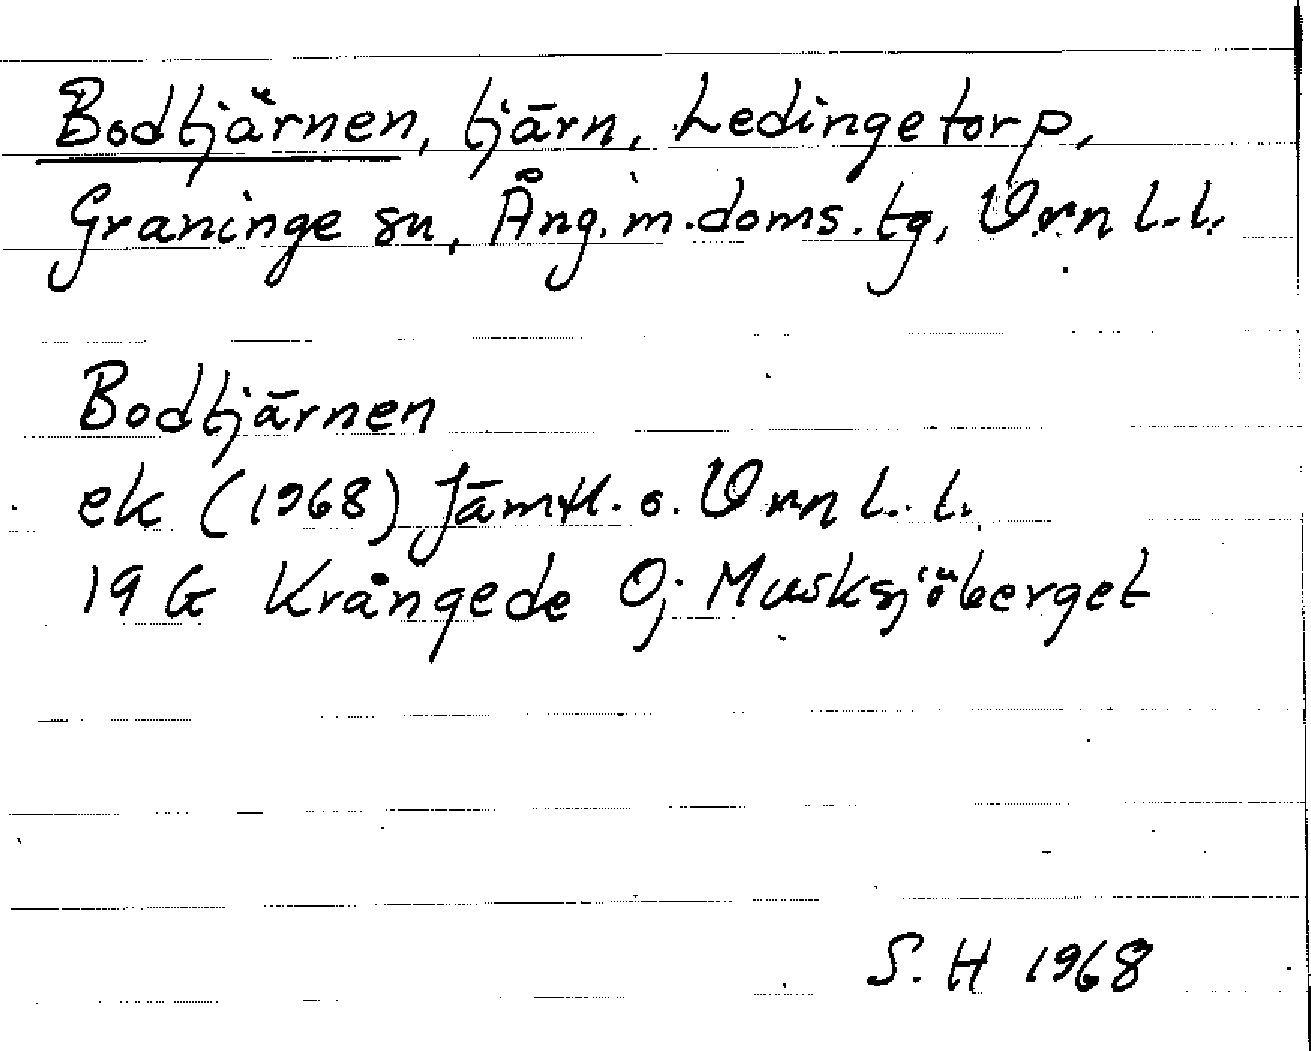 Bodtjärnen, tjärn, Ledingetorp,
Graninge sn, Ång. m. doms. tg, Vrn l.l.
Bodtjärnen
ek (1968) Jämtl. o. Vrn l.l.
19 G Krångede Oj Musksjöberget
S. H 1968